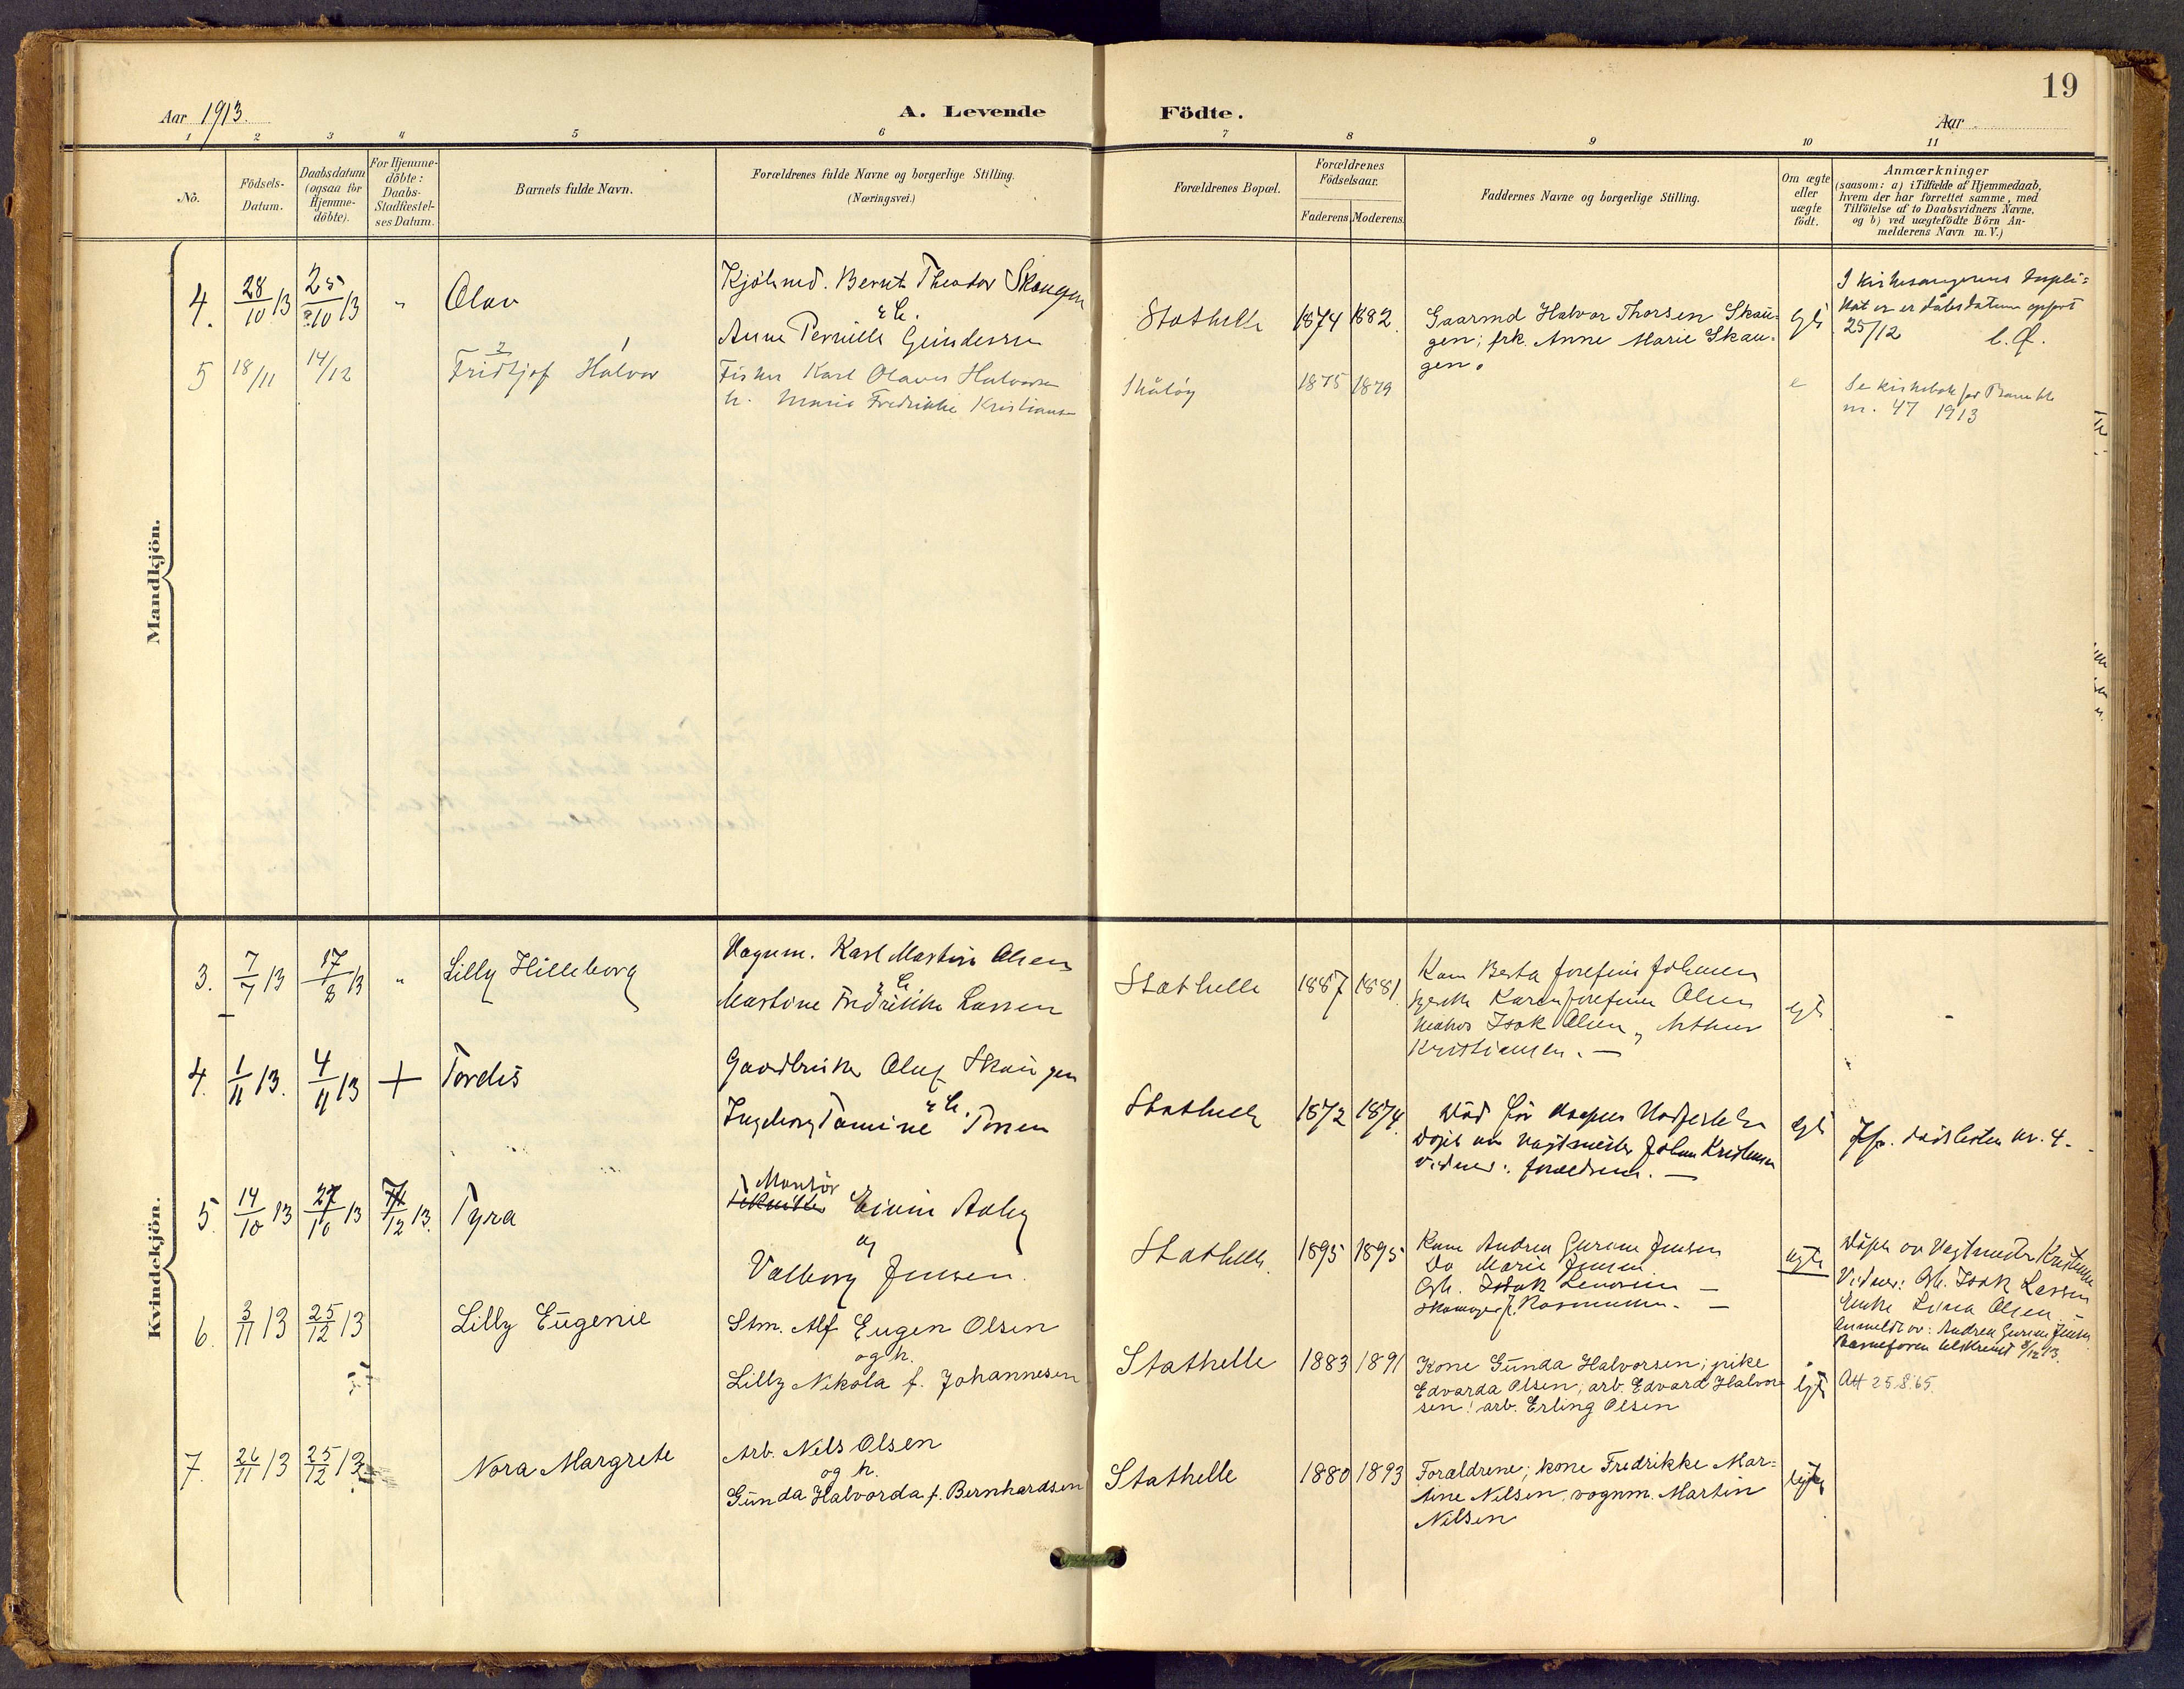 19
Aar 1913.
A. Levende Födte.
Aar
1 2 3 4 5 6 7 8 9 10 11
No.
Födsels-Datum.
Daabsdatum (ogsaa for Hjemme-döbte).
For Hjemme-döbte: Daabs-Stadfæstel-ses Datum.
Barnets fulde Navn.
Forældrenes fulde Navne og borgerlige Stilling.
(Næringsvei.)
Forældrenes Bopæl.
Forældrenes Födselsaar.
Faderens Moderens
Faddernes Navne og borgerlige Stilling.
Om ægte eller uægte födt.
Anmærkninger
(saasom: a) i Tilfælde af Hjemmedaab,
hvem der har forrettet samme, med
Tilföielse af to Daabsvidners Navne,
og b) ved uægtefödte Börn An-
melderens Navn m. V.)
Mandkjön.
4. 28/10 13 25/10 13 " Olav
Kjölmd. Bernt Theodor Skougen
Anne Pernille
Stathelle 1874 1882.
Gaarmd Halvor Thorsen Skau-
gen; frk. Anne Marie Skau-
gen.
25/12
5 18/11 14/12 Fridtjof Halvor
2 1
Fisker Karl Olaves Halvorsen
h. Maria Fredrikke Kristiansen
Skåtøy 1875 1879
e
Se kirkebok for Bamble
nr. 47 1913
Kvindekjön.
3. 7/7 13 17/8 13 " Lilly Hilleborg
Vognm. Karl Martin Olsen
Martine Fredrikke Larsen
Stathelle 1887 1881
Kone Berta Josefine Johnsen
Karen Josefine Olsen
Isak Olsen, Arthur
Kristiansen. —
4. 1/11 13. 4/11 13 + Tordis
Gaardbruker Oluf Skougen
Ingeborg Tomine
Stathelle 1872 1874
Død før daapens Stadfestelse
Døpt av vagtmester Johan Kristensen
Vidner: forældrene. —
Jfr. dødslisten nr. 4.
5. 14/10 13 27/10 13 12 13. Tyra
Montör
Eivin Aaby
og
Valborg Jensen.
Stathelle. 1895 1895
Kone Andrea Gurine Jensen
Do Marie Jensen
Rasmussen. —
uegte
Døpt av Vagtmester Kristensen
Vidner: Isak Larsen
Enke Olsen —
Anmeldt av: Andrea Gurine Jensen
Barnefaren tilskrevet 8/12 13.
6. 3/11 13 25/12 13 Lilly Eugenie
Stm. Alf Eugen Olsen
og h.
Lilly Nikola f. Johannesen
Stathelle 1883 1891
Kone Gunda Halvorsen; pike
Edvarda Olsen; arb. Edvard Halvor-
sen; arb. Erling Olsen
egte
Att 25.8.65.
7. 26/11 13 25/12 13 Nora Margrete
Arb. Nels Olsen
og h.
Gunda Halvorda f. Bernhardsen
Stathelle 1880 1893
Forældrene; kone Fredrikke Mar-
tine Nilsen, vognm. Martin
Nilsen
egte